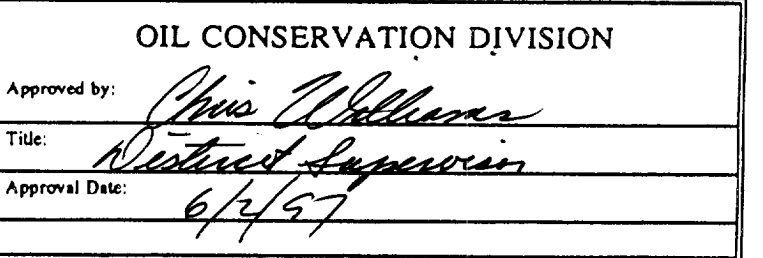 OIL CONSERVATION DIVISION
Approved by: Chris Williams
Title: District Supervisor
Approval Date: 6/2/97